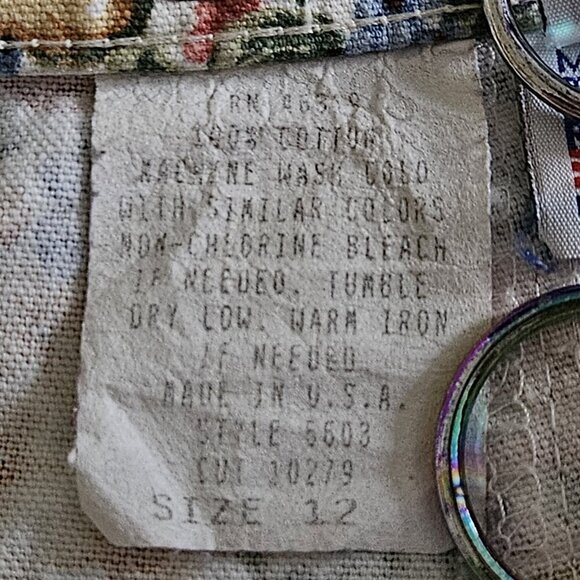 RN
100% COTTON
MACHINE WASH COLD
WITH SIMILAR COLORS
NON-CHLORINE BLEACH
IF NEEDED. TUMBLE
DRY LOW. WARM IRON
IF NEEDED
MADE IN U.S.A.
STYLE 6603
CUT 10279
SIZE 12